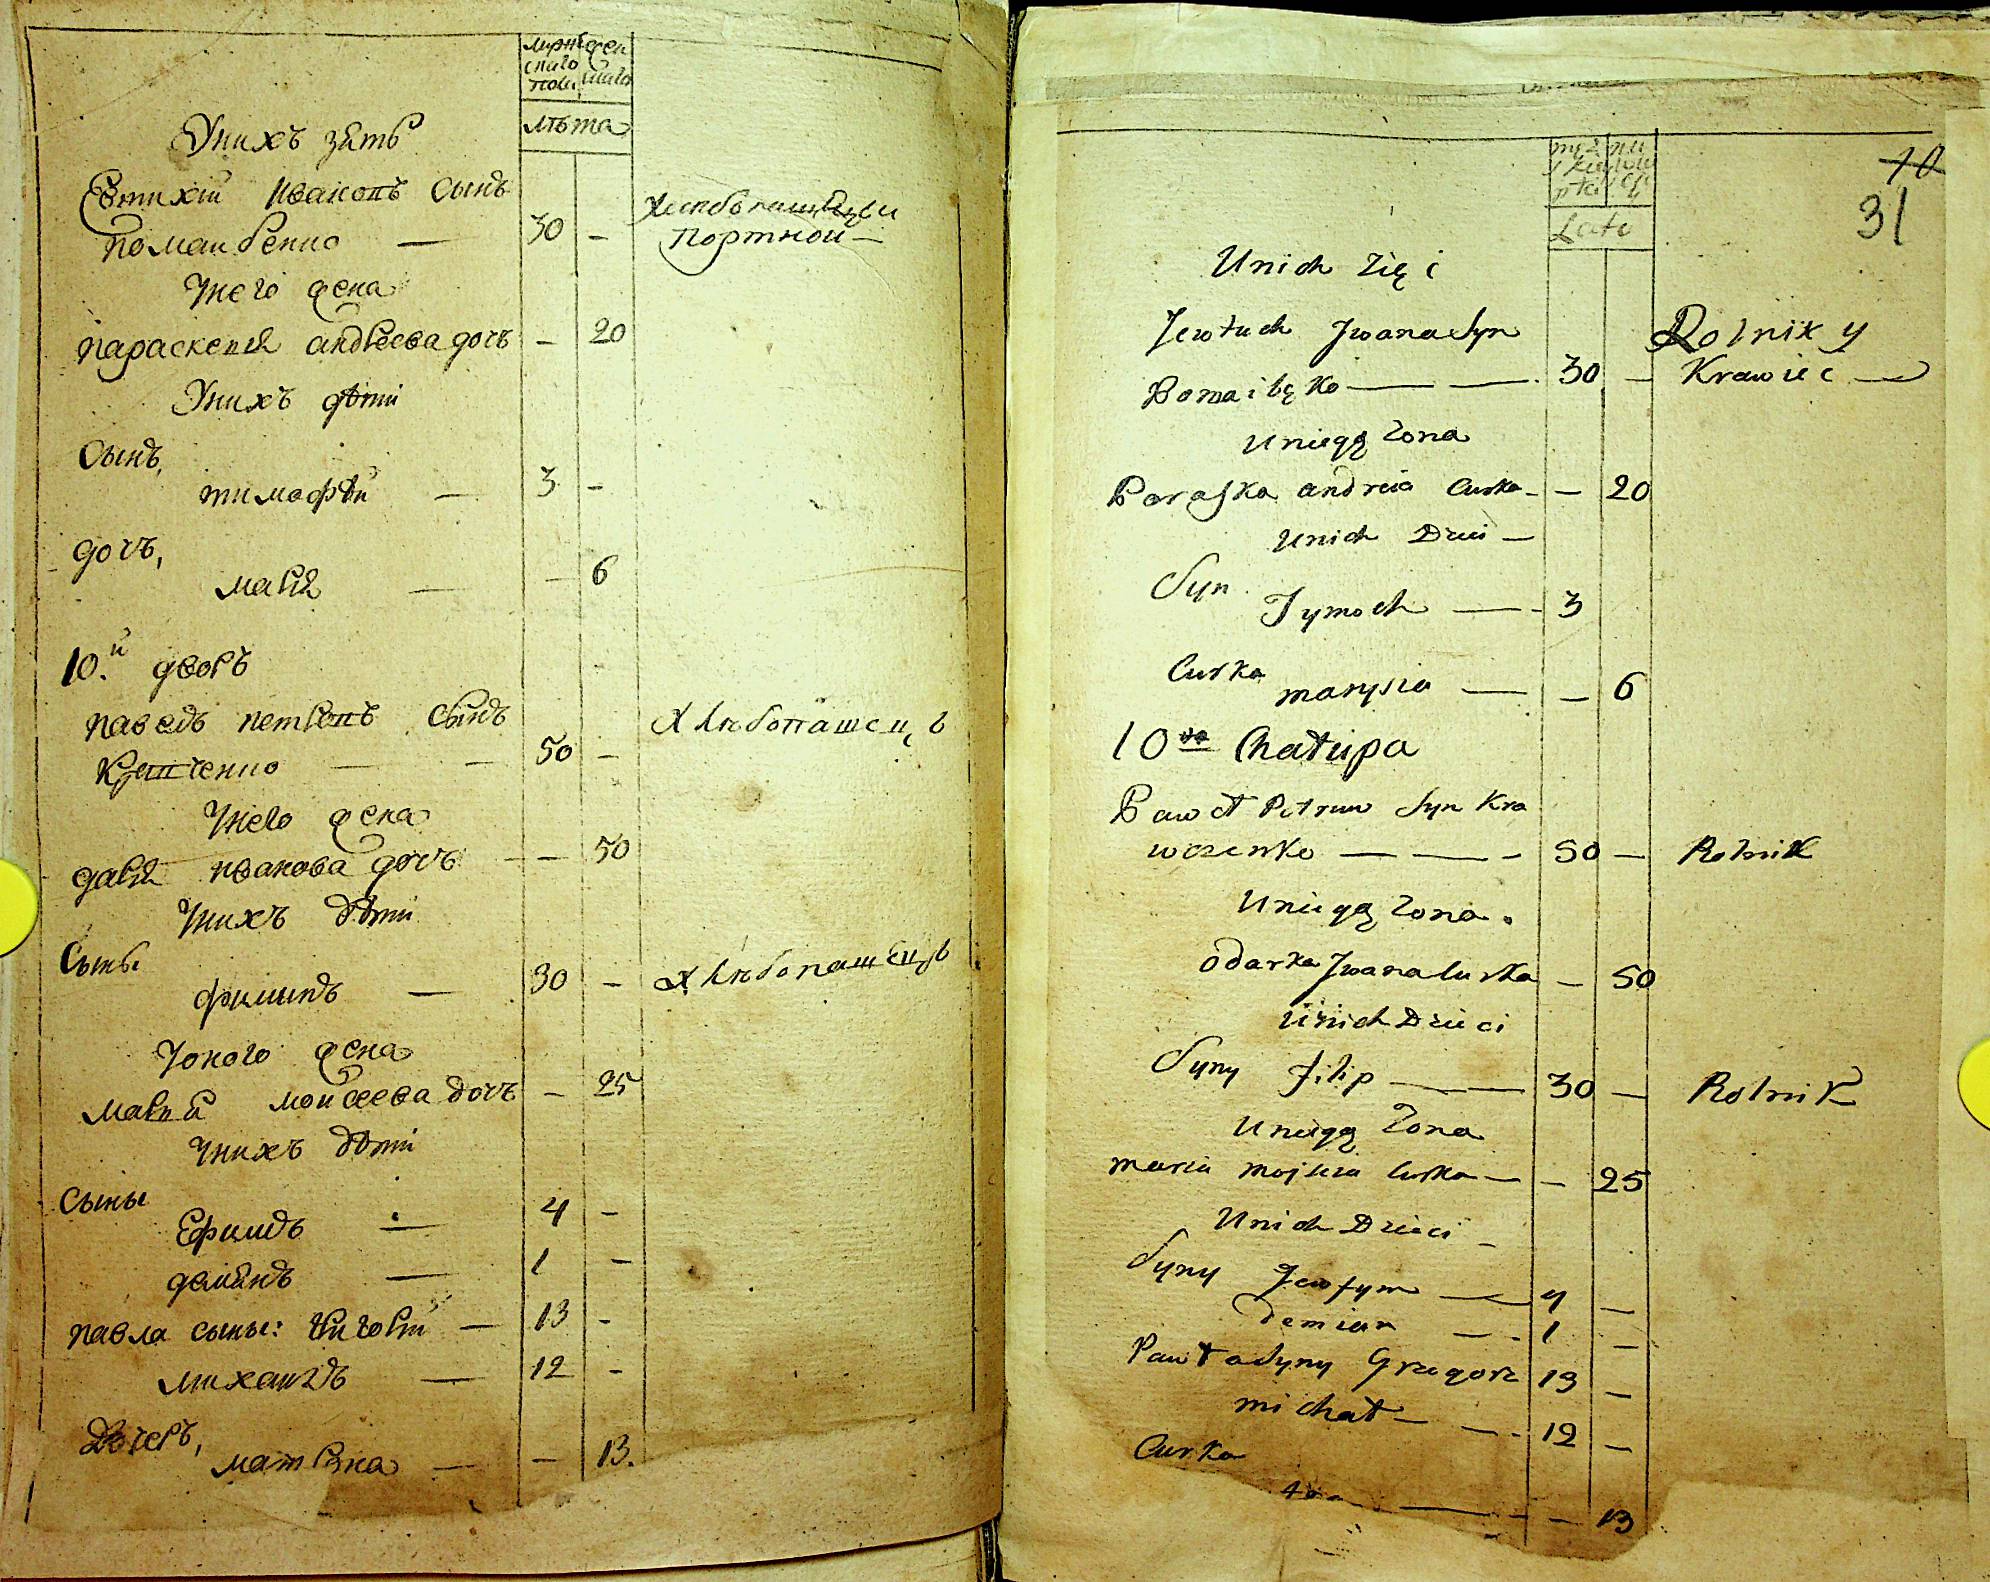 мужескаго пола женскаго
лѣта
Унихъ зять
Евтихій Ивановъ сынъ хлѣбопашецъ и
Помаибенко — 30 — Портной —
Унего жена
Параскевія андреева дочь — 20
Унихъ дѣти
Сынъ,
тимофѣй — 3 —
дочь,
марія — — 6
10.й дворъ
Павелъ петровъ сынъ хлѣбопашецъ
Кравченко — — 50 —
Унего жена
дарія иванова дочь — — 50
Унихъ дѣти
Сыны
филипъ — 30 — хлѣбопашецъ
Уоного жена
марія моисеева дочь — 25
Унихъ дѣти
Сыны
Ефимъ — 4 —
деміянъ — 1 —
Павла сыны: Григорій — 13 —
михаилъ — 12 —
Дочерь,
матрона — — 13.
10
31
Lata
Unich Zięć
Jewtuch Jwana Syn Rolnik y
Pomaibęko — — 30 — Krawiec —
Uniegą Zona
Paraska andreia Curka — — 20
Unich Dzieci —
Syn
Tymoch — — 3
Curka
marysia — — 6
10ta Chałupa
Paweł Petruw Syn Kra
wczenko — — — 50 — Rolnik
Uniegą Zona.
Odarka Jwana Curka — 50
Unich Dzieci
Syny Filip — 30 — Rolnik
Uniegą Zona
maria mojsieia Curka — — 25
Unich Dzieci —
Syny Jewfym — 4 —
demian — — 1 —
Pawła Syny Grzegorz 13 —
michał — — 12 —
Curka
— — — 13